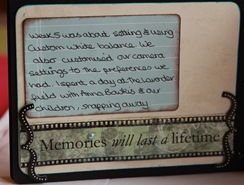 week 5 was about setting & using
custom white balance. We
also customised our camera
settings to the preferences we
had. I spent a day at the lavender
field with Anna Bowkis & our
children, snapping away
Memories will last a lifetime